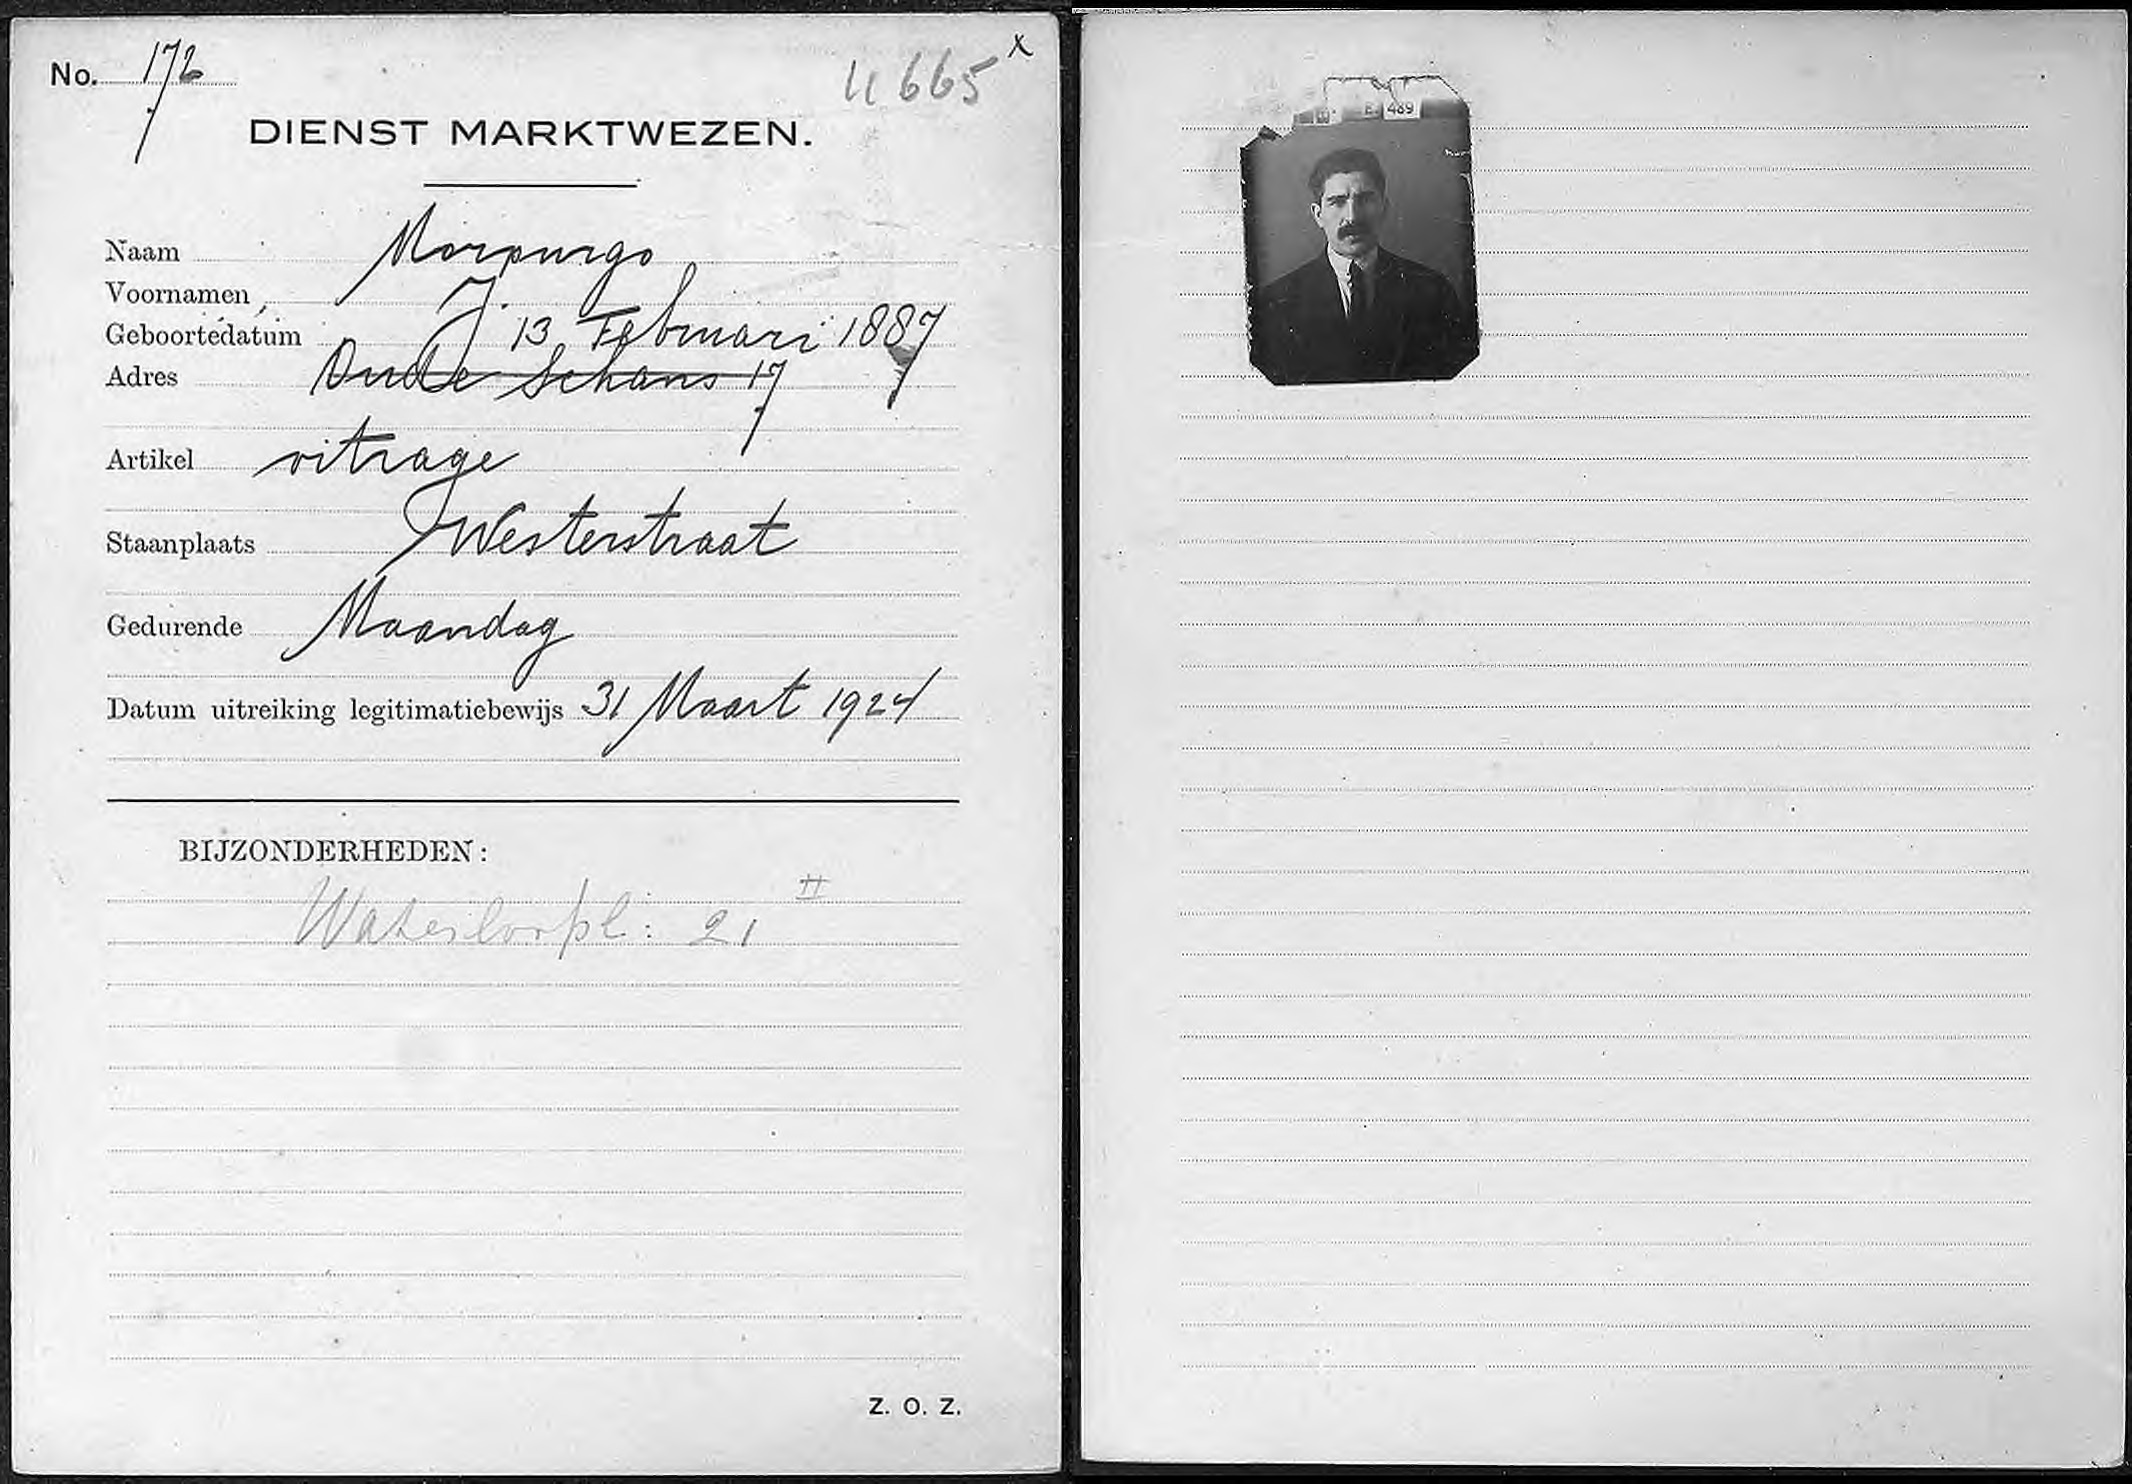 No. 172
11665 x
DIENST MARKTWEZEN.
Naam Morpurgo
Voornamen J.
Geboortedatum 13 Februari 1887
Adres Oude Schans 17
Artikel vitrage
Staanplaats Westerstraat
Gedurende Maandag
Datum uitreiking legitimatiebewijs 31 Maart 1924
BIJZONDERHEDEN:
Waterloopl: 21 II
Z. O. Z.
489